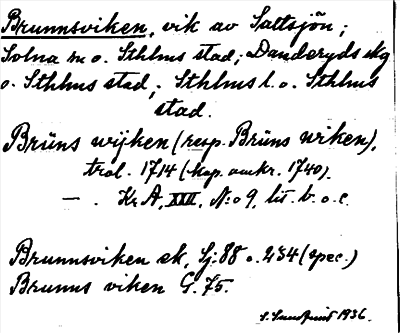 Brunnsviken, vik av Saltsjön;
Solna sn o. Sthlms stad; Danderyds skg
o. Sthlms stad; Sthlms l. o. Sthlms
stad.
Brüns wijken (resp. Brüns wiken),
trol. 1714 (kop. omkr. 1740).
— . Kr. A, XVII, N:o 9, lit. b. o. c.
Brunnsviken sk, Sj: 88 o. 234 (spec.)
Brunns viken G. 75.
1936.